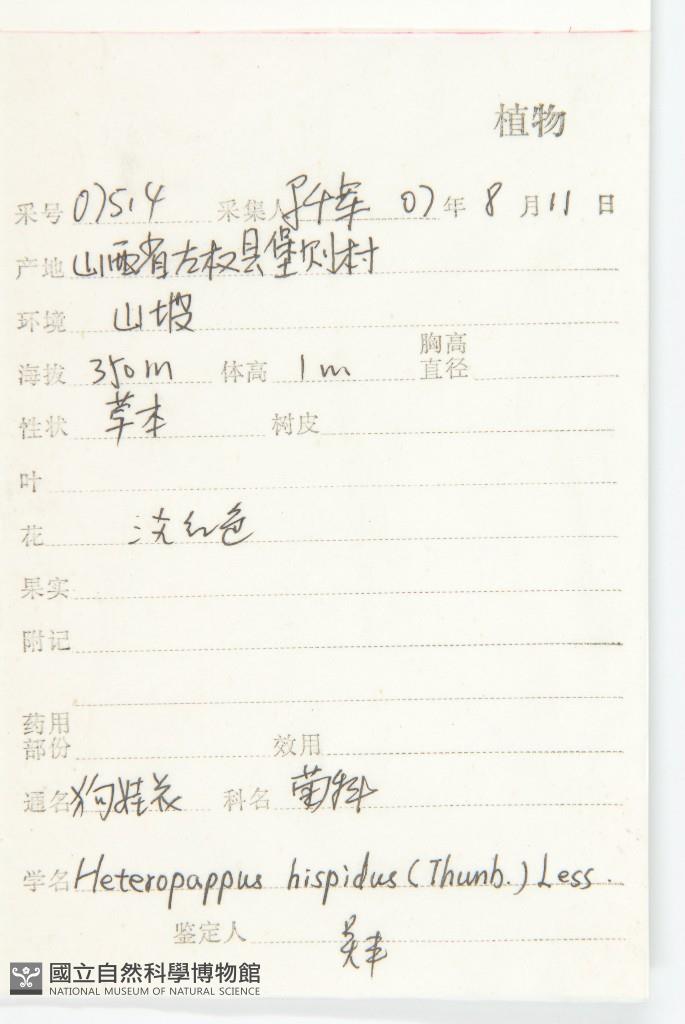 植物
采号 07514 采集人 07年8月11日
产地 山西省左权县堡则村
环境 山坡
海拔 350m 体高 1m 胸高直径
性状 草本 树皮
叶
花 淡红色
果实
附记
药用部份 效用
通名 狗娃花 科名 菊科
学名 Heteropappus hispidus (Thunb.) Less.
鉴定人
國立自然科學博物館
NATIONAL MUSEUM OF NATURAL SCIENCE